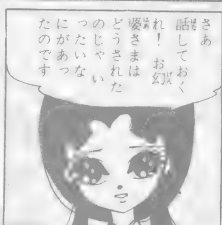 さあ
話しておく
れ！　お幻
婆さまは
どうされた
のじゃ　い
ったいな
にがあっ
たのです